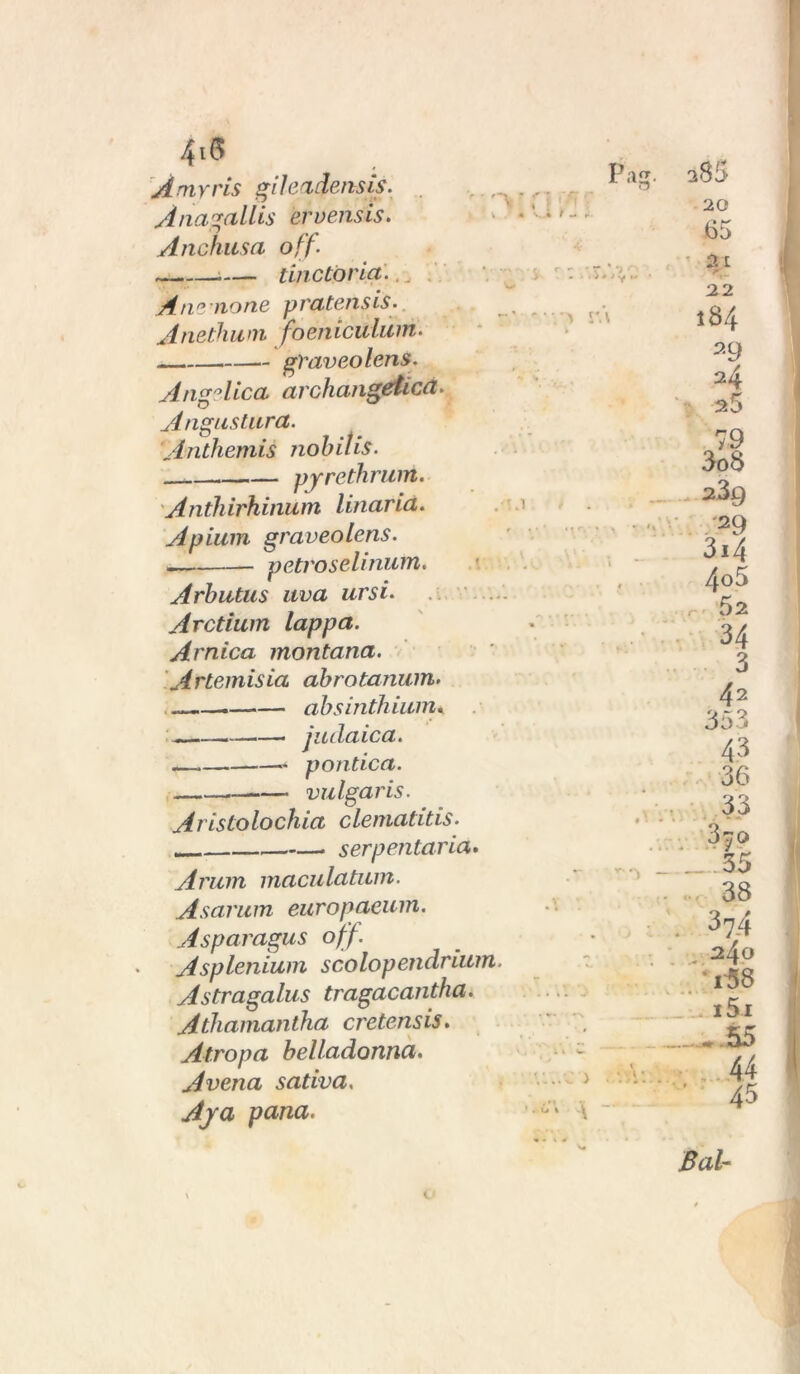 416
Amyris gileadensis. Pag. 285
Anagallis ervensis. 20
Anchusa off. 65
——— tinctoria. 21
Anemone pratensis. 22
Anethum foeniculum. 184
——— graveolens. 29
Angelica archangelica. 24
Angustura. 25
Anthemis nobilis. 79
——— pyrethrum. 308
Anthirhinum linaria. 239
Apium graveolens. 29
——— petroselinum. 314
Arbutus uva ursi. 405
Arctium lappa. 52
Arnica montana. 34
Artemisia abrotanum. 3
——— absinthium. 42
——— judaica. 353
——— pontica. 43
——— vulgaris. 36
Aristolochia clematitis. 33
——— serpentaria. 370
Arum maculatum. 35
Asarum europaeum. 38
Asparagus off. 374
Asplenium scolopendrium. 240
Astragalus tragacantha. 158
Athamantha cretensis. 151
Atropa belladonna. 55
Avena sativa. 44
Aya pana. 45
Bal-